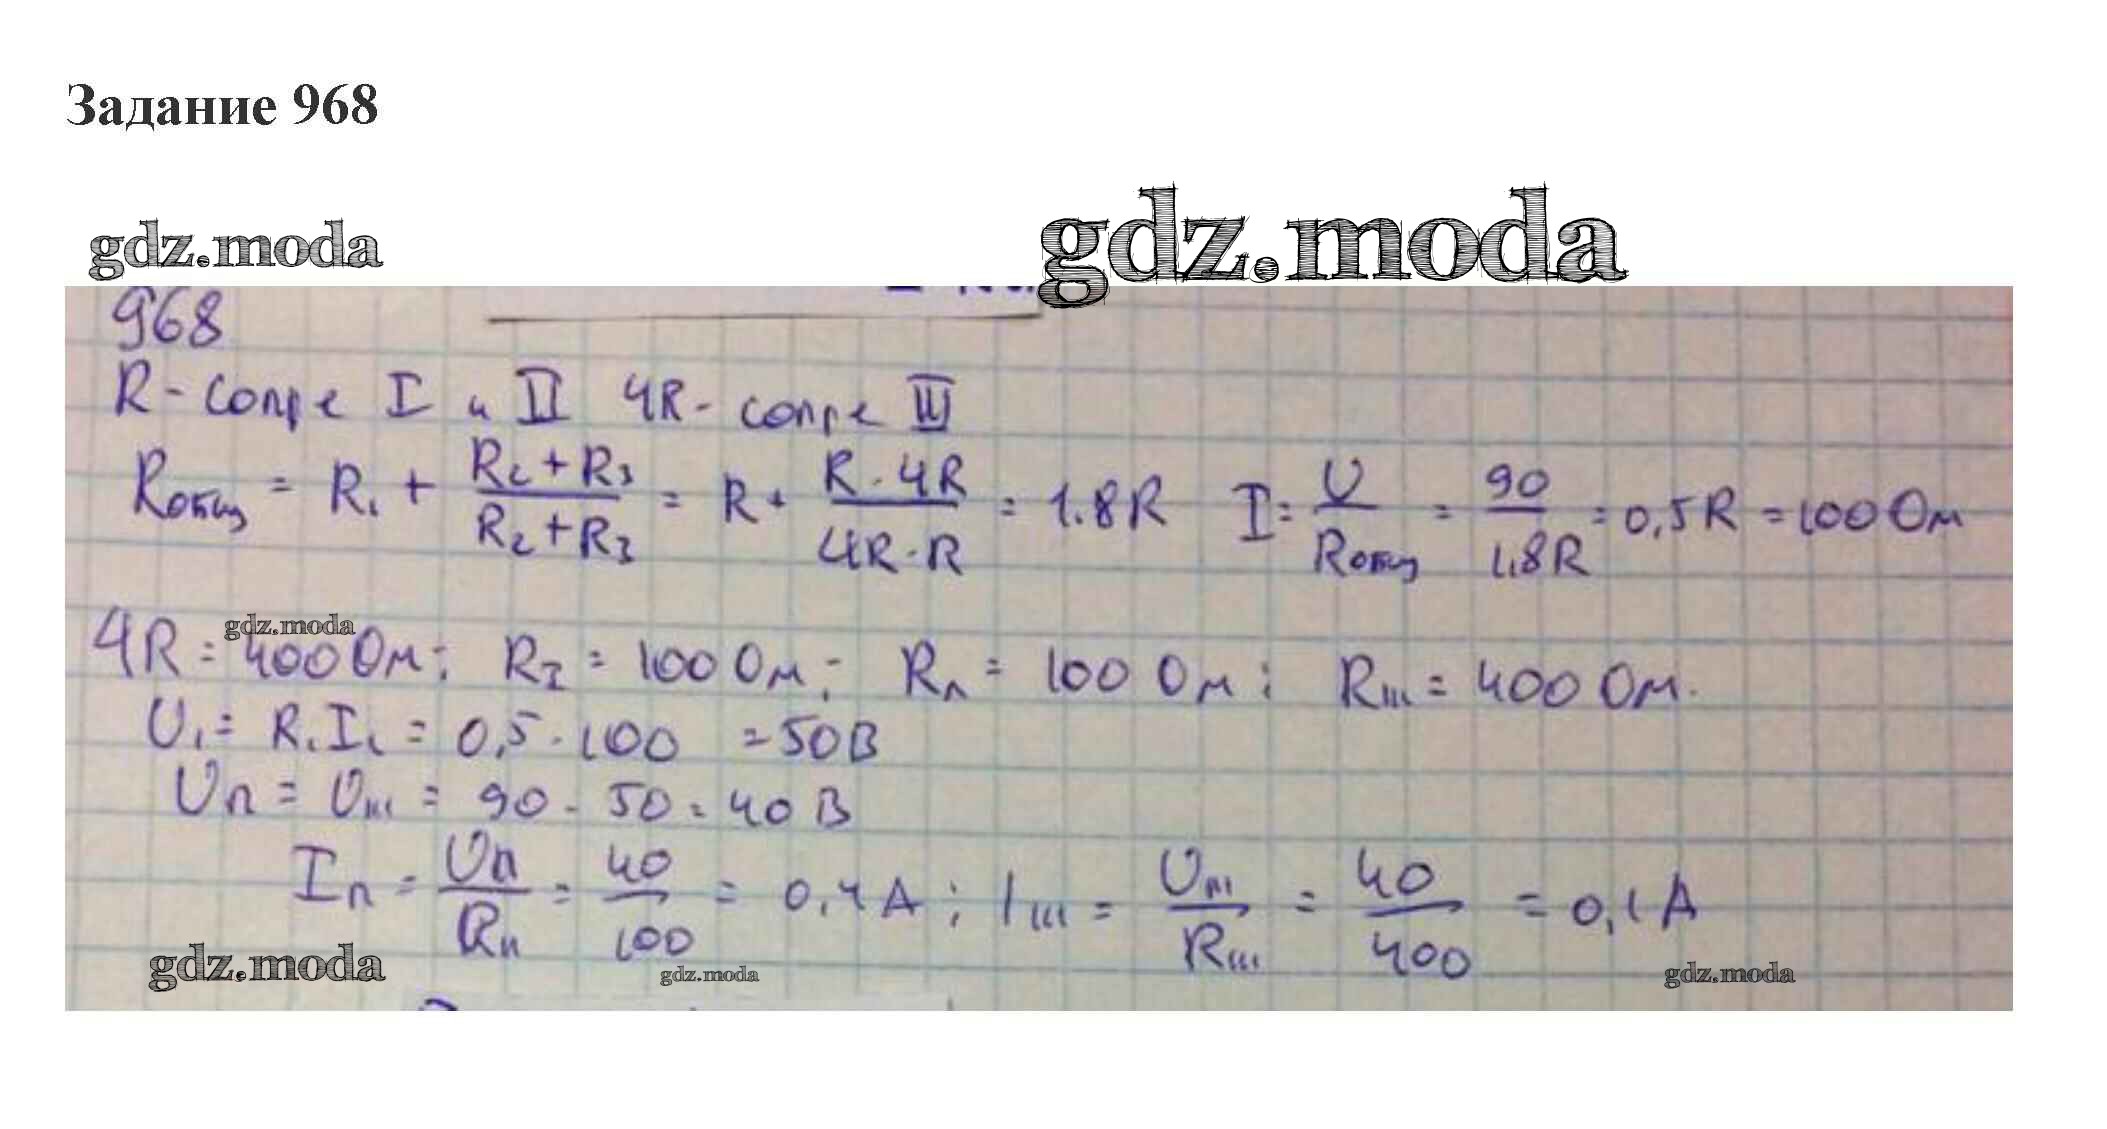 Задание 968
gdz.moda
gdz.moda
968
R - сопре I и II 4R - сопре III
Rобщ = R₁ + (R₂+R₃)/(R₂+R₃) = R + (R·4R)/(4R·R) = 1.8R I = U/Rобщ = 90/1,8R = 0,5R = 100 Ом
gdz.moda
4R = 400 Ом; R₂ = 100 Ом; Rл = 100 Ом; Rш = 400 Ом.
U₁ = R₁I₁ = 0,5 · 100 = 50 В
Uп = Uш = 90 - 50 = 40 В
Iп = Uп/Rп = 40/100 = 0,4 А; Iш = Uш/Rш = 40/400 = 0,1 А
gdz.moda
gdz.moda
gdz.moda